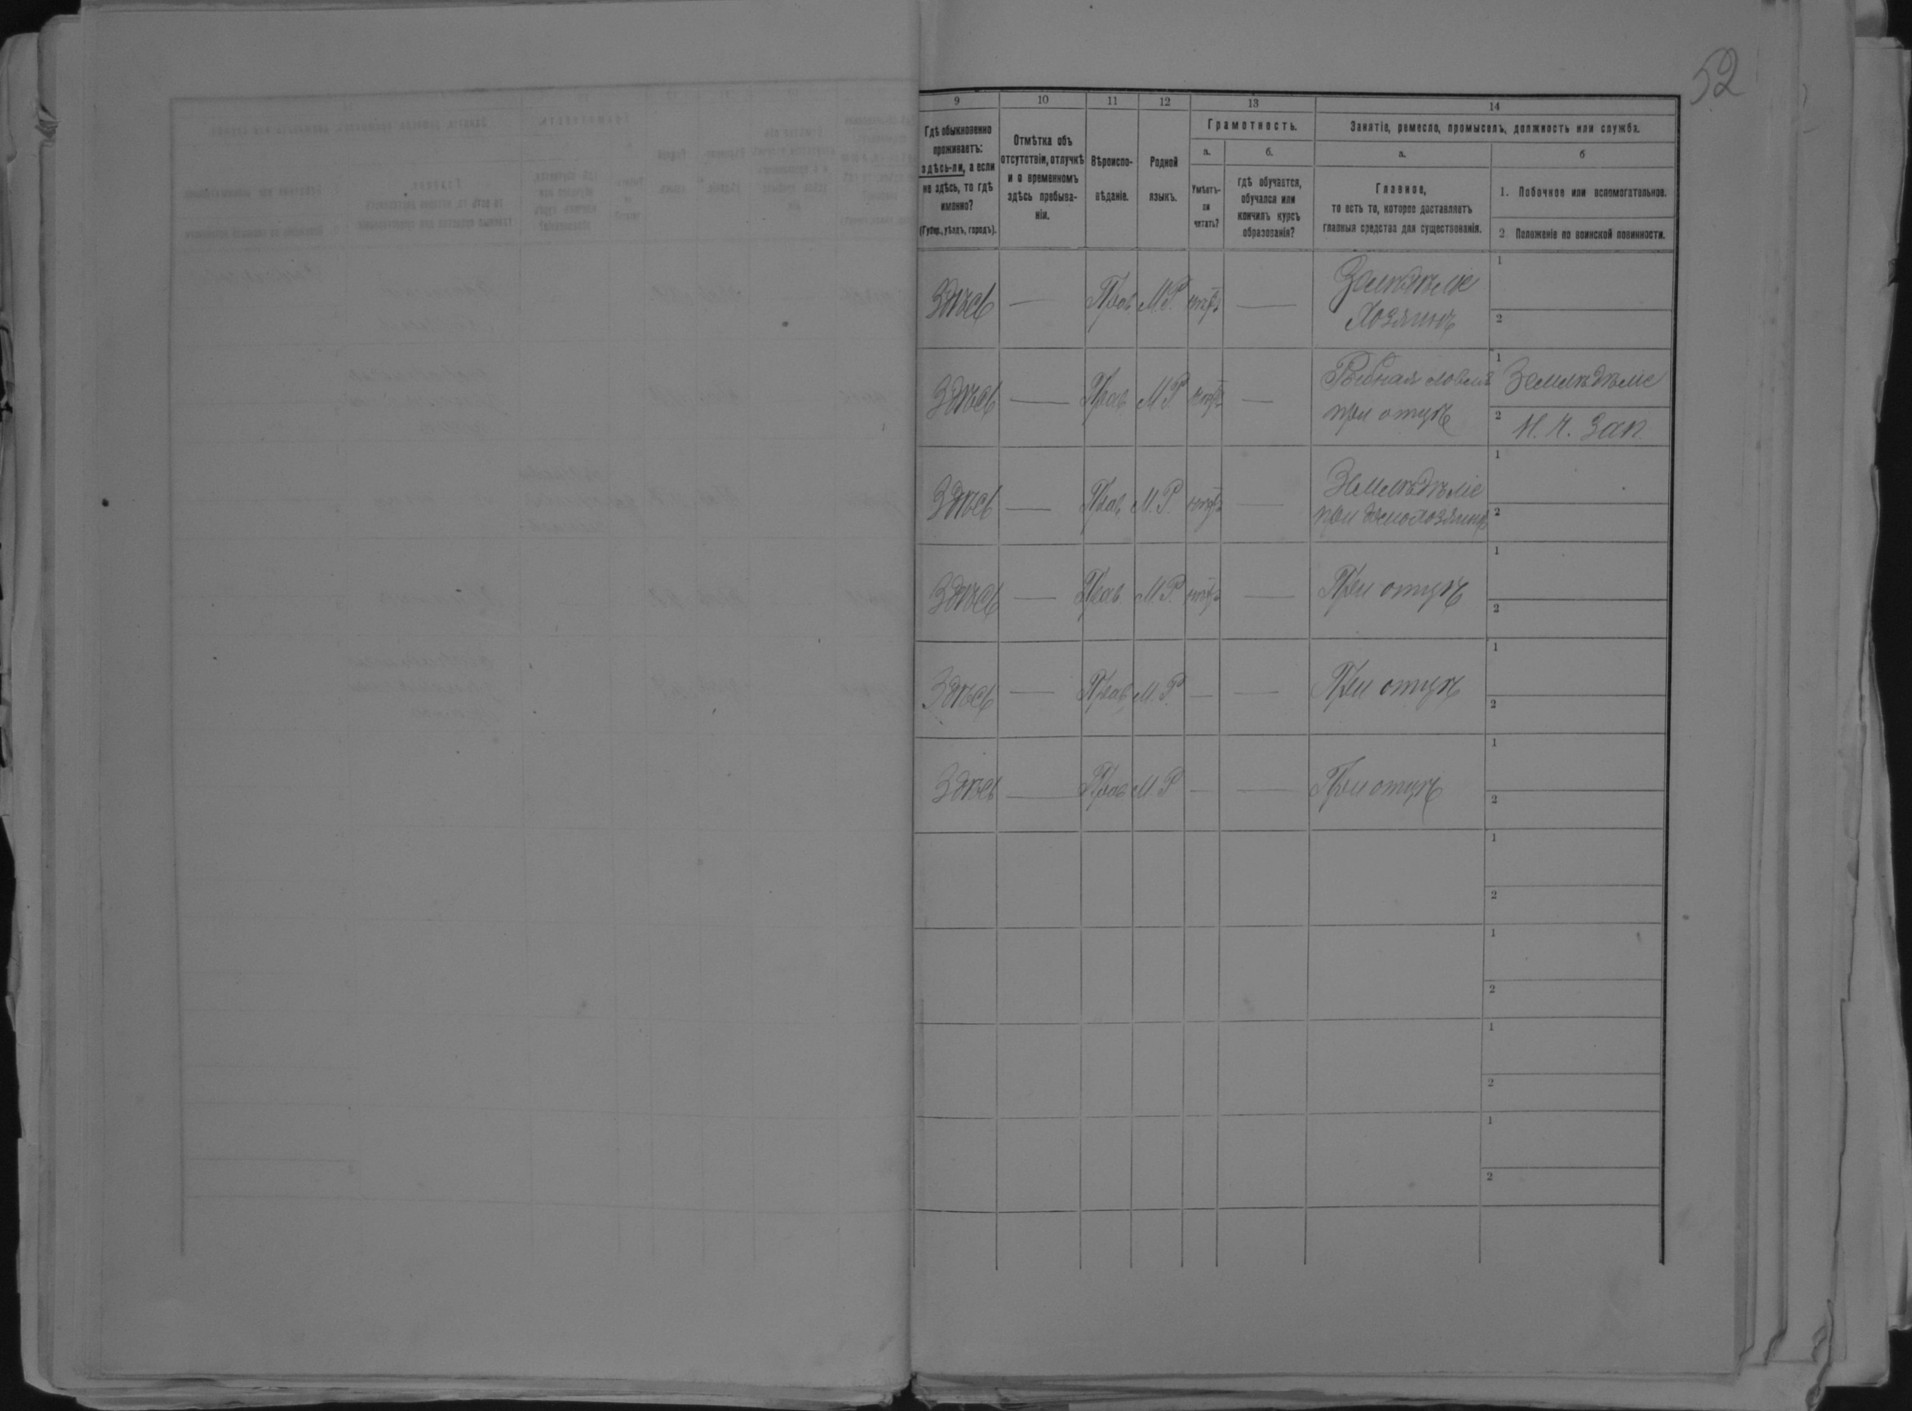 52
9 10 11 12 13 14
Гдѣ обыкновенно
проживаетъ:
здѣсь-ли, а если
не здѣсь, то гдѣ
именно?
(Губер., уѣздъ, городъ).
Отмѣтка объ
отсутствіи, отлучкѣ
и о временномъ
здѣсь пребыва-
ніи.
Вѣроиспо-
вѣданіе.
Родной
языкъ.
Грамотность.
а.
Умѣетъ-
ли
читать?
б.
гдѣ обучается,
обучался или
кончилъ курсъ
образованія?
Занятіе, ремесло, промыселъ, должность или служба.
а.
Главное,
то есть то, которое доставляетъ
главныя средства для существованія.
б
1. Побочное или вспомогательное.
2. Положеніе по воинской повинности.
Здѣсь — Прав М.Р. нѣтъ — Земледѣліе
Хозяинъ
1
2
Здѣсь — Прав М.Р нѣтъ — Рыбная ловля
при отцѣ
1 Земледѣліе
2 Н. Ч. Зап
Здѣсь — Прав М.Р. нѣтъ — Земледѣліе
при
1
2
Здѣсь — Прав М.Р. нѣтъ — При отцѣ
1
2
Здѣсь — Прав М.Р. — — При отцѣ
1
2
Здѣсь — Прав М.Р — — При отцѣ
1
2
1
2
1
2
1
2
1
2